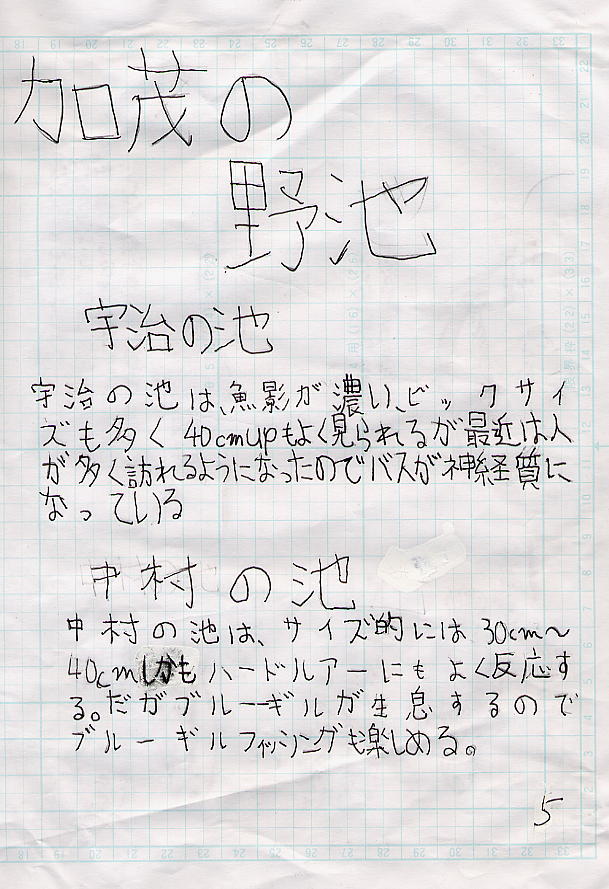 加茂の
野池
宇治の池
宇治の池は、魚影が濃い、ビックサイ
ズも多く40cmupもよく見られるが最近は人
が多く訪れるようになったのでバスが神経質に
なっている
中村の池
中村の池は、サイズ的には30cm〜
40cmしかもハードルアーにもよく反応す
る。だがブルーギルが生息するので
ブルーギルフィッシングも楽しめる。
5